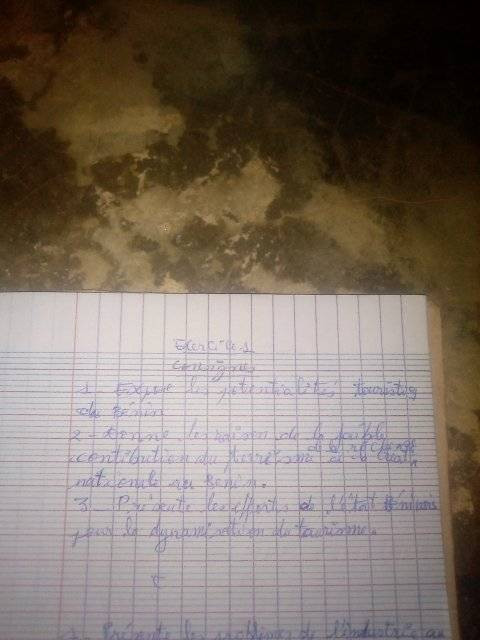 Exercice 1
Consignes
1 Expose les potentialités touristiq
du Bénin
2 - Donne les raison de la faible
contribution du tourisme à la
de richesse
nationale au Bénin.
3 - Présente les efforts de l'état béninois
pour la dynamisation du tourisme.
Présente les problèmes de